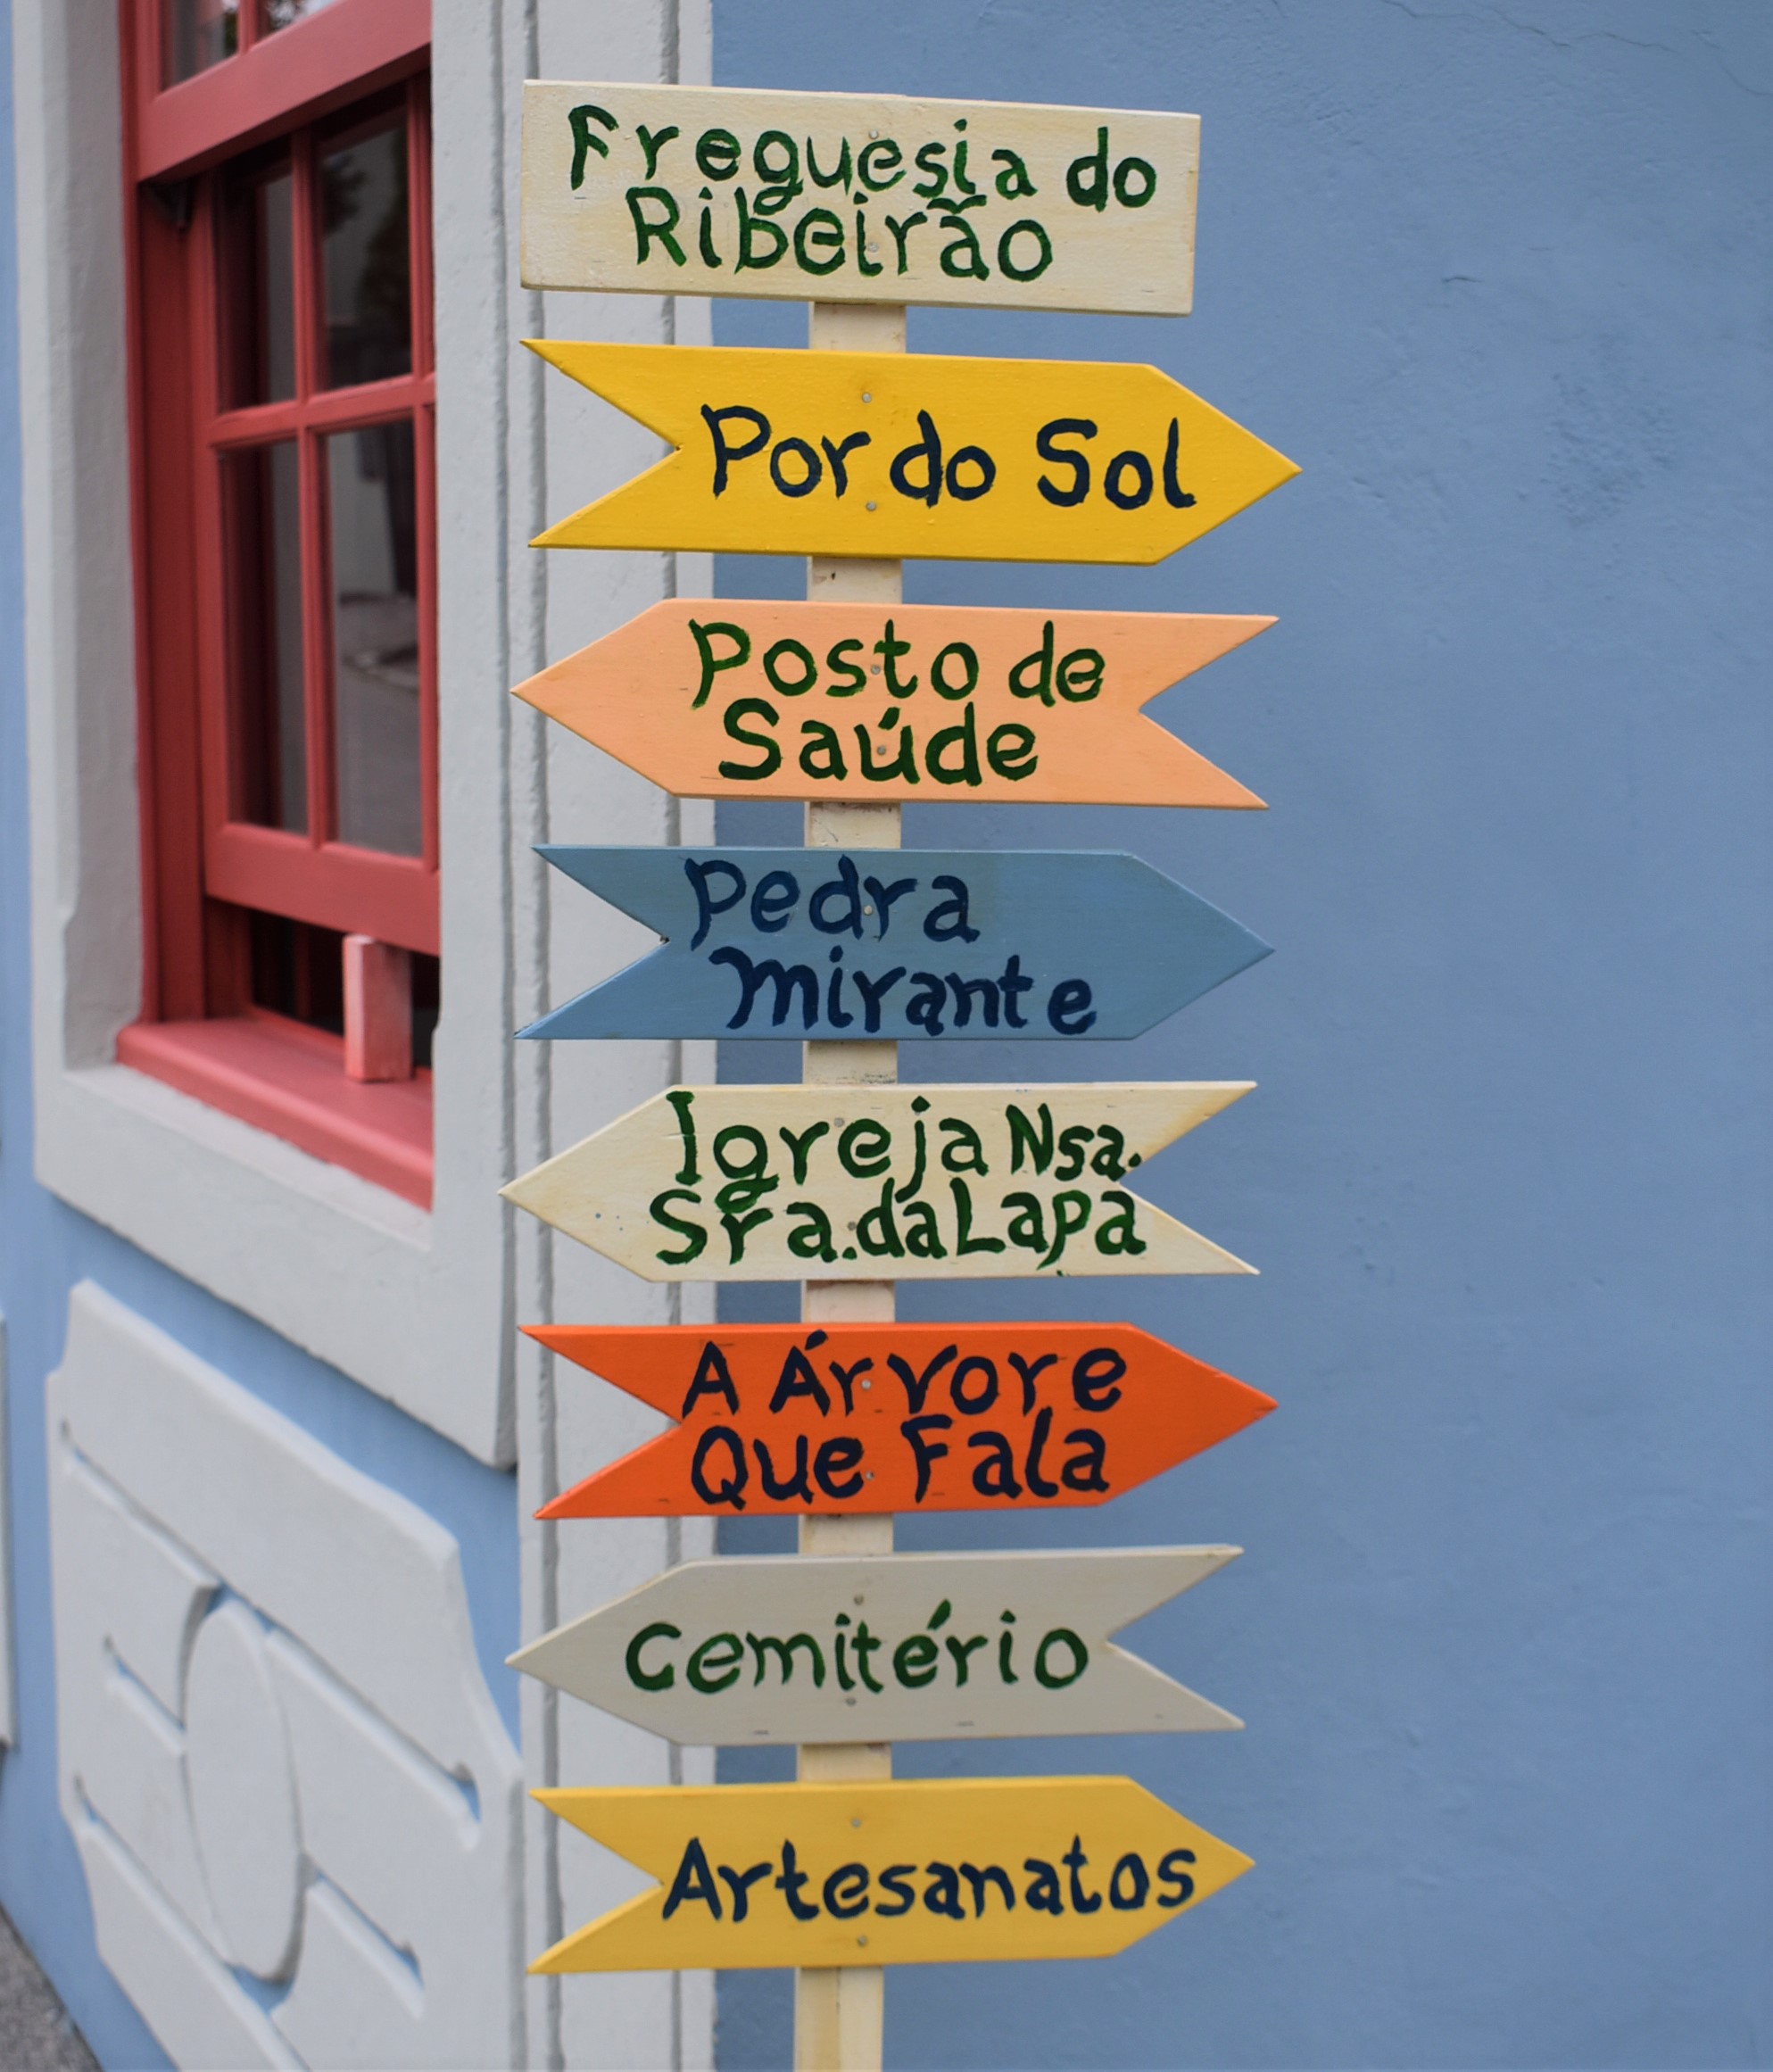 Freguesia do
Ribeirão
Por do Sol
Posto de
Saúde
Pedra
Mirante
Igreja Nsa.
Sra. da Lapa
A Árvore
Que Fala
Cemitério
Artesanatos